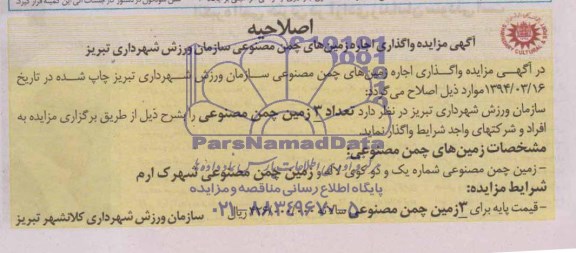 اصلاحیه
آگهی مزایده واگذاری اجاره زمین‌های چمن مصنوعی سازمان ورزش شهرداری تبریز
در آگهی مزایده واگذاری اجاره زمین‌های چمن مصنوعی سازمان ورزش شهرداری تبریز چاپ شده در تاریخ
۱۳۹۴/۰۳/۱۶ موارد ذیل اصلاح می‌گردد:
سازمان ورزش شهرداری تبریز در نظر دارد تعداد ۳ زمین چمن مصنوعی را بشرح ذیل از طریق برگزاری مزایده به
افراد و شرکتهای واجد شرایط واگذار نماید.
مشخصات زمین‌های چمن مصنوعی:
- زمین چمن مصنوعی شماره یک و دو کوی لاله و زمین چمن مصنوعی شهرک ارم
شرایط مزایده:
- قیمت پایه برای ۳ زمین چمن مصنوعی ریال
سازمان ورزش شهرداری کلانشهر تبریز
ParsNamadData
پایگاه اطلاع رسانی مناقصه و مزایده
۰۲۱-۸۸۳۴۹۶۷۰-۵